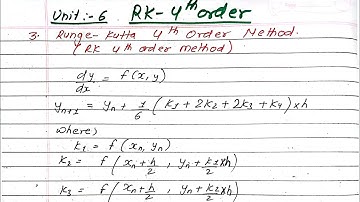 Unit :- 6 RK- 4th order
3. Runge-Kutta 4th Order Method.
(RK 4th order method)
dy/dx = f(x, y)
yn+1 = yn + 1/6 (k1 + 2k2 + 2k3 + k4) xh
where,
k1 = f(xn, yn)
k2 = f(xn + h/2 , yn + k1/2 xh)
k3 = f(xn + h/2 , yn + k2/2 xh)